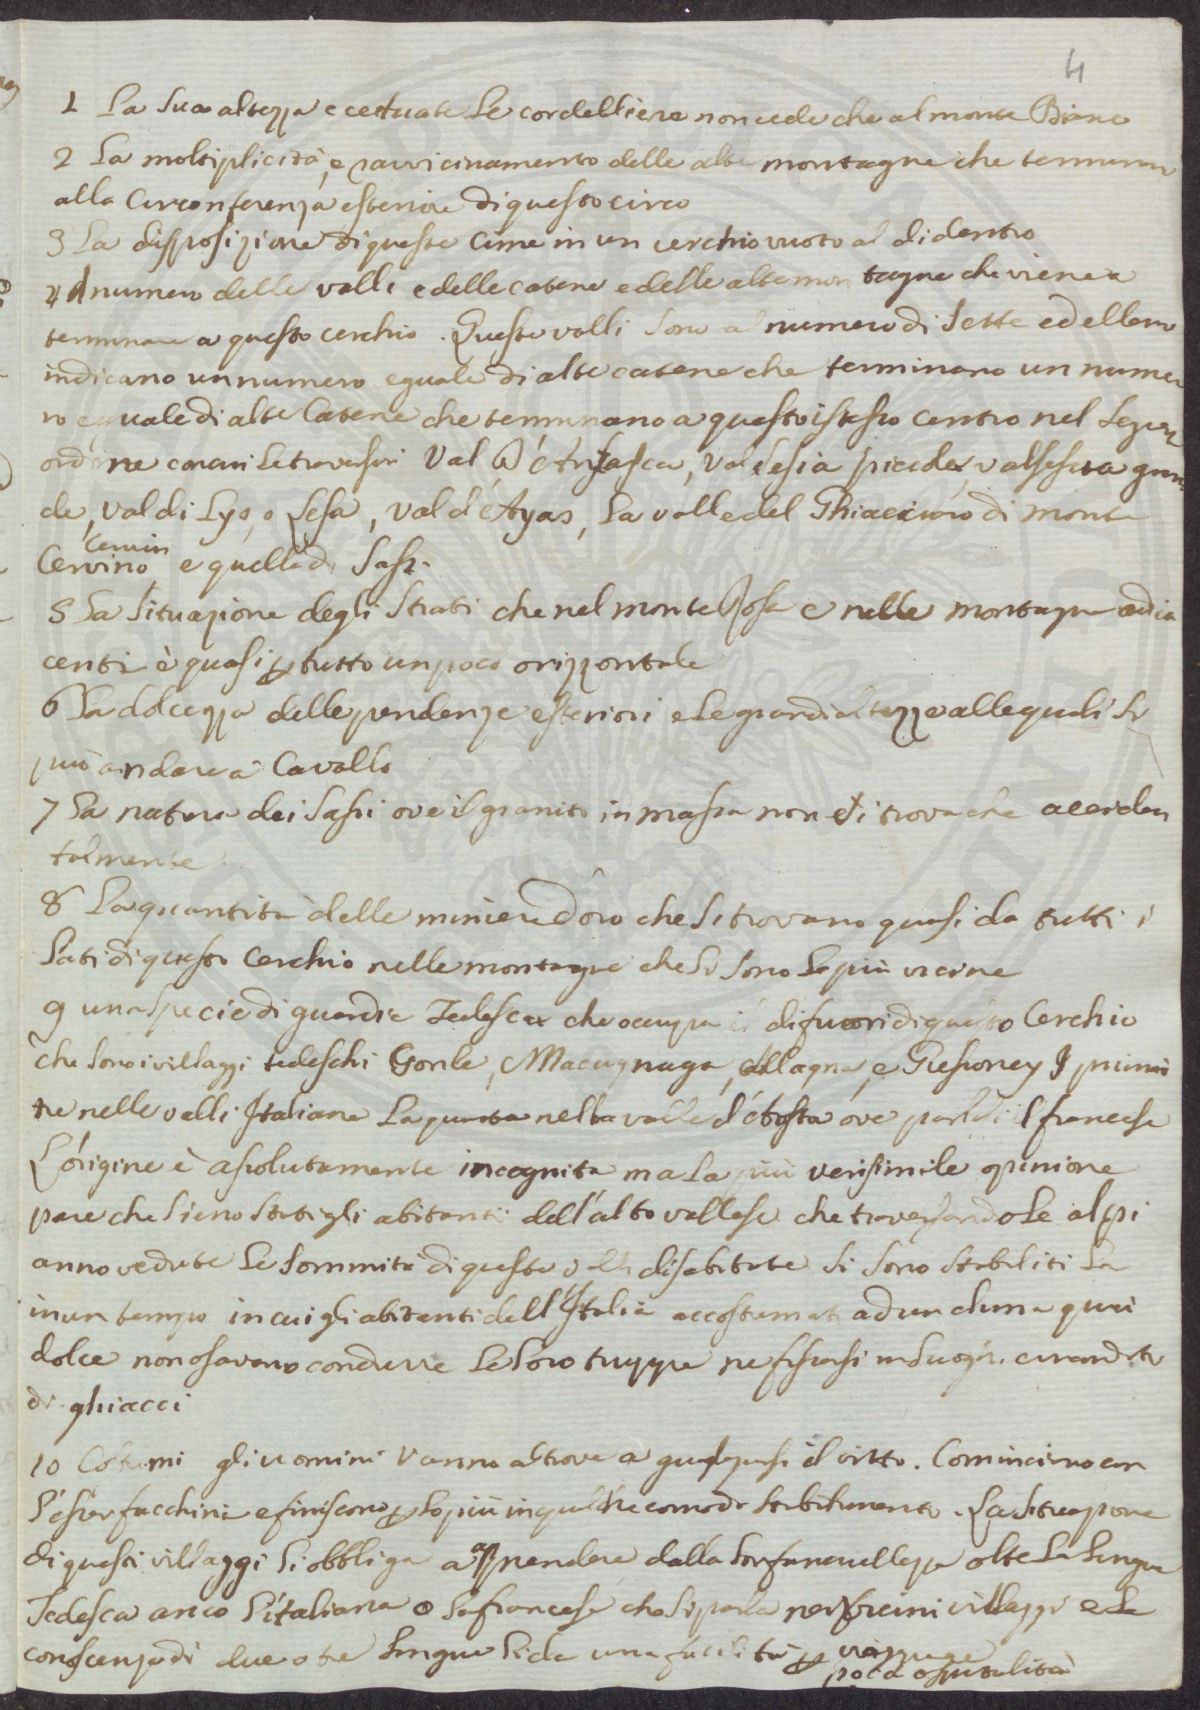 4
1 La sua altezza eccetuate le cordelliere non cede che al monte Bianco
2 La moltiplicità, e ravvicinamento delle alte montagne che terminan
alla Circonferenza esteriore di questo circo
3 La disposizione di queste cime in un cerchio vuoto al di dentro
4 Il numero delle valli e delle catene e delle alte mon tagne che viene a
terminare a questo cerchio. Queste valli sono al numero di Sette ed elleno
indicano un numero eguale di alte catene che terminano un nume
ro eguale di alte Catene che terminano a questo istesso centro nel seguen
ordine come si Val d'Anzasca, Val Sesia piccola, valsesia gran
de, Val di Lys, o Lesa, Val d'Ayas, La valle del Ghiacciaio di monte
Cervin
Cervino e quella di Sass.
5 La Situazione degli Strati che nel monte Rosa e nelle montagne adia
centi è quasi per tutto un poco orizzontale
6 La dolcezza delle pendenze esteriori e le grandi altezze alle quali si
può andare a Cavallo
7 La natura dei Sassi ove il granito in massa non si trova che acciden
talmente
8 La quantità delle miniere d'oro che si trovano quasi da tutti i
Lati di questo Cerchio nelle montagne che li sono le più vicine
9 una specie di guardia Tedesca che occupa il difuori di questo Cerchio
che sono i villaggi tedeschi Macugnaga, Allagna, e Gressoney I primi
tre nelle valli Italiane La quarta nella valle d'Aosta ove parlasi il francese
L'origine è assolutamente incognita ma la più verisimile opinione
pare che sieno stati gli abitanti dell'alto vallese che traversando le alpi
anno vedute le sommità di queste valli disabitate si sono stabiliti La
in un tempo in cui gli abitanti dell'Italia accostumati ad un clima più
dolce non osavano condurre le loro truppe ne fissarsi in luoghi circondati
di ghiacci
10 Costumi gli uomini vanno altrove a guadagnarsi il vitto. Cominciano con
l'esser facchini e finiscono per lo più in qualche comodo stabilimento. La situazione
di questi villaggi li obbliga a apprendere dalla lor fanciullezza oltre la lingua
Tedesca anco l'italiana o la francese che si parla nei vicini villaggi e la
conoscenza di due o tre lingue li da una facilità per viaggiare
poca ospitalità